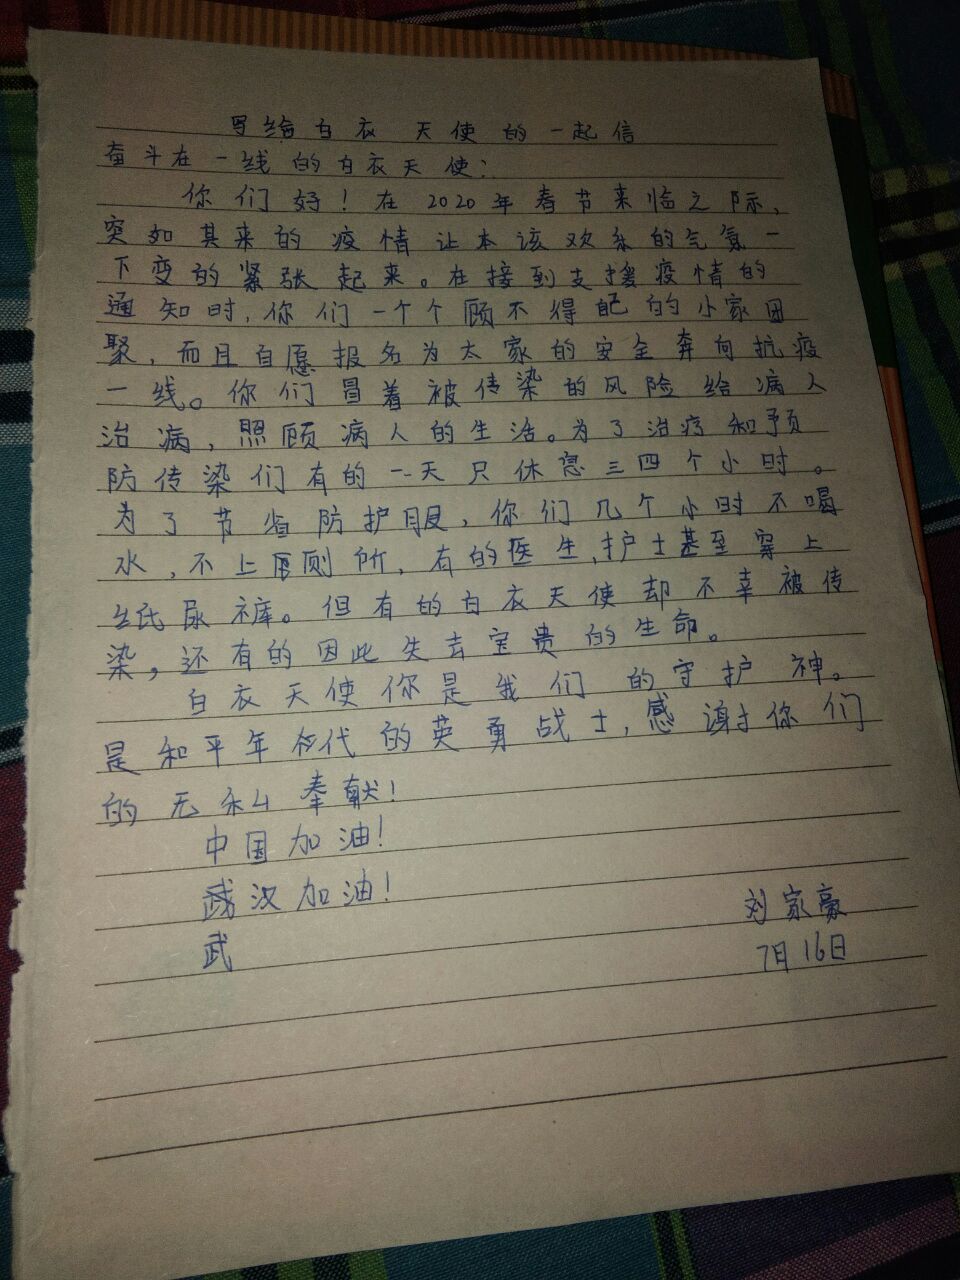 写给白衣天使的一起信
奋斗在一线的白衣天使:
你们好!在2020年春节来临之际,
突如其来的疫情让本该欢乐的气氛一
下变的紧张起来。在接到支援疫情的
通知时,你们一个个顾不得自己的小家团
聚,而且自愿报名为大家的安全奔向抗疫
一线。你们冒着被传染的风险给病人
治病,照顾病人的生活。为了治疗和预
防传染们有的一天只休息三四个小时。
为了节省防护服,你们几个小时不喝
水,不上厕所,有的医生,护士甚至穿上
纸尿裤。但有的白衣天使却不幸被传
染,还有的因此失去宝贵的生命。
白衣天使你是我们的守护神。
是和平年代的英勇战士,感谢你们
的无私奉献!
中国加油!
武汉加油!
刘家豪
武
7月16日